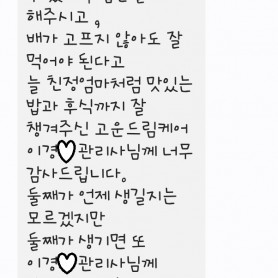 해주시고 ,
배가 고프지 않아도 잘
먹어야 된다고
늘 친정엄마처럼 맛있는
밥과 후식까지 잘
챙겨주신 고운드림케어
이경♡관리사님께 너무
감사드립니다.
둘째가 언제 생길지는
모르겠지만
둘째가 생기면 또
이경♡관리사님께